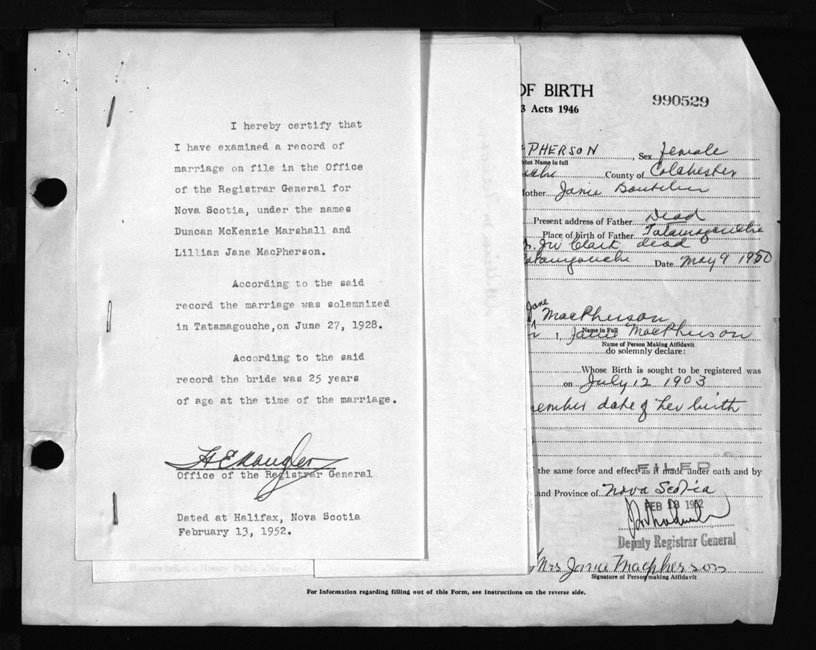 I hereby certify that
I have examined a record of
marriage on file in the Office
of the Registrar General for
Nova Scotia, under the names
Duncan McKenzie Marshall and
Lillian Jane MacPherson.
According to the said
record the marriage was solemnized
in Tatamagouche, on June 27, 1928.
According to the said
record the bride was 25 years
of age at the time of the marriage.
Office of the Registrar General
Dated at Halifax, Nova Scotia
February 13, 1952.
OF BIRTH
3 Acts 1946
990529
PHERSON, Sex female
Name in full
County of Colchester
Mother Janie
Present address of Father Dead
Place of birth of Father Tatamagouche
Clark dead
Date May 9 1950
Jane
MacPherson
Name in Full
I, Janie MacPherson
Name of Person Making Affidavit
do solemnly declare:
Whose Birth is sought to be registered was
on July 12 1903
date of her birth
the same force and effect as if made under oath and by
FILED
and Province of Nova Scotia
FEB 1952
Deputy Registrar General
Mrs Janie Macpherson
Signature of Person making Affidavit
For Information regarding filling out of this Form, see Instructions on the reverse side.